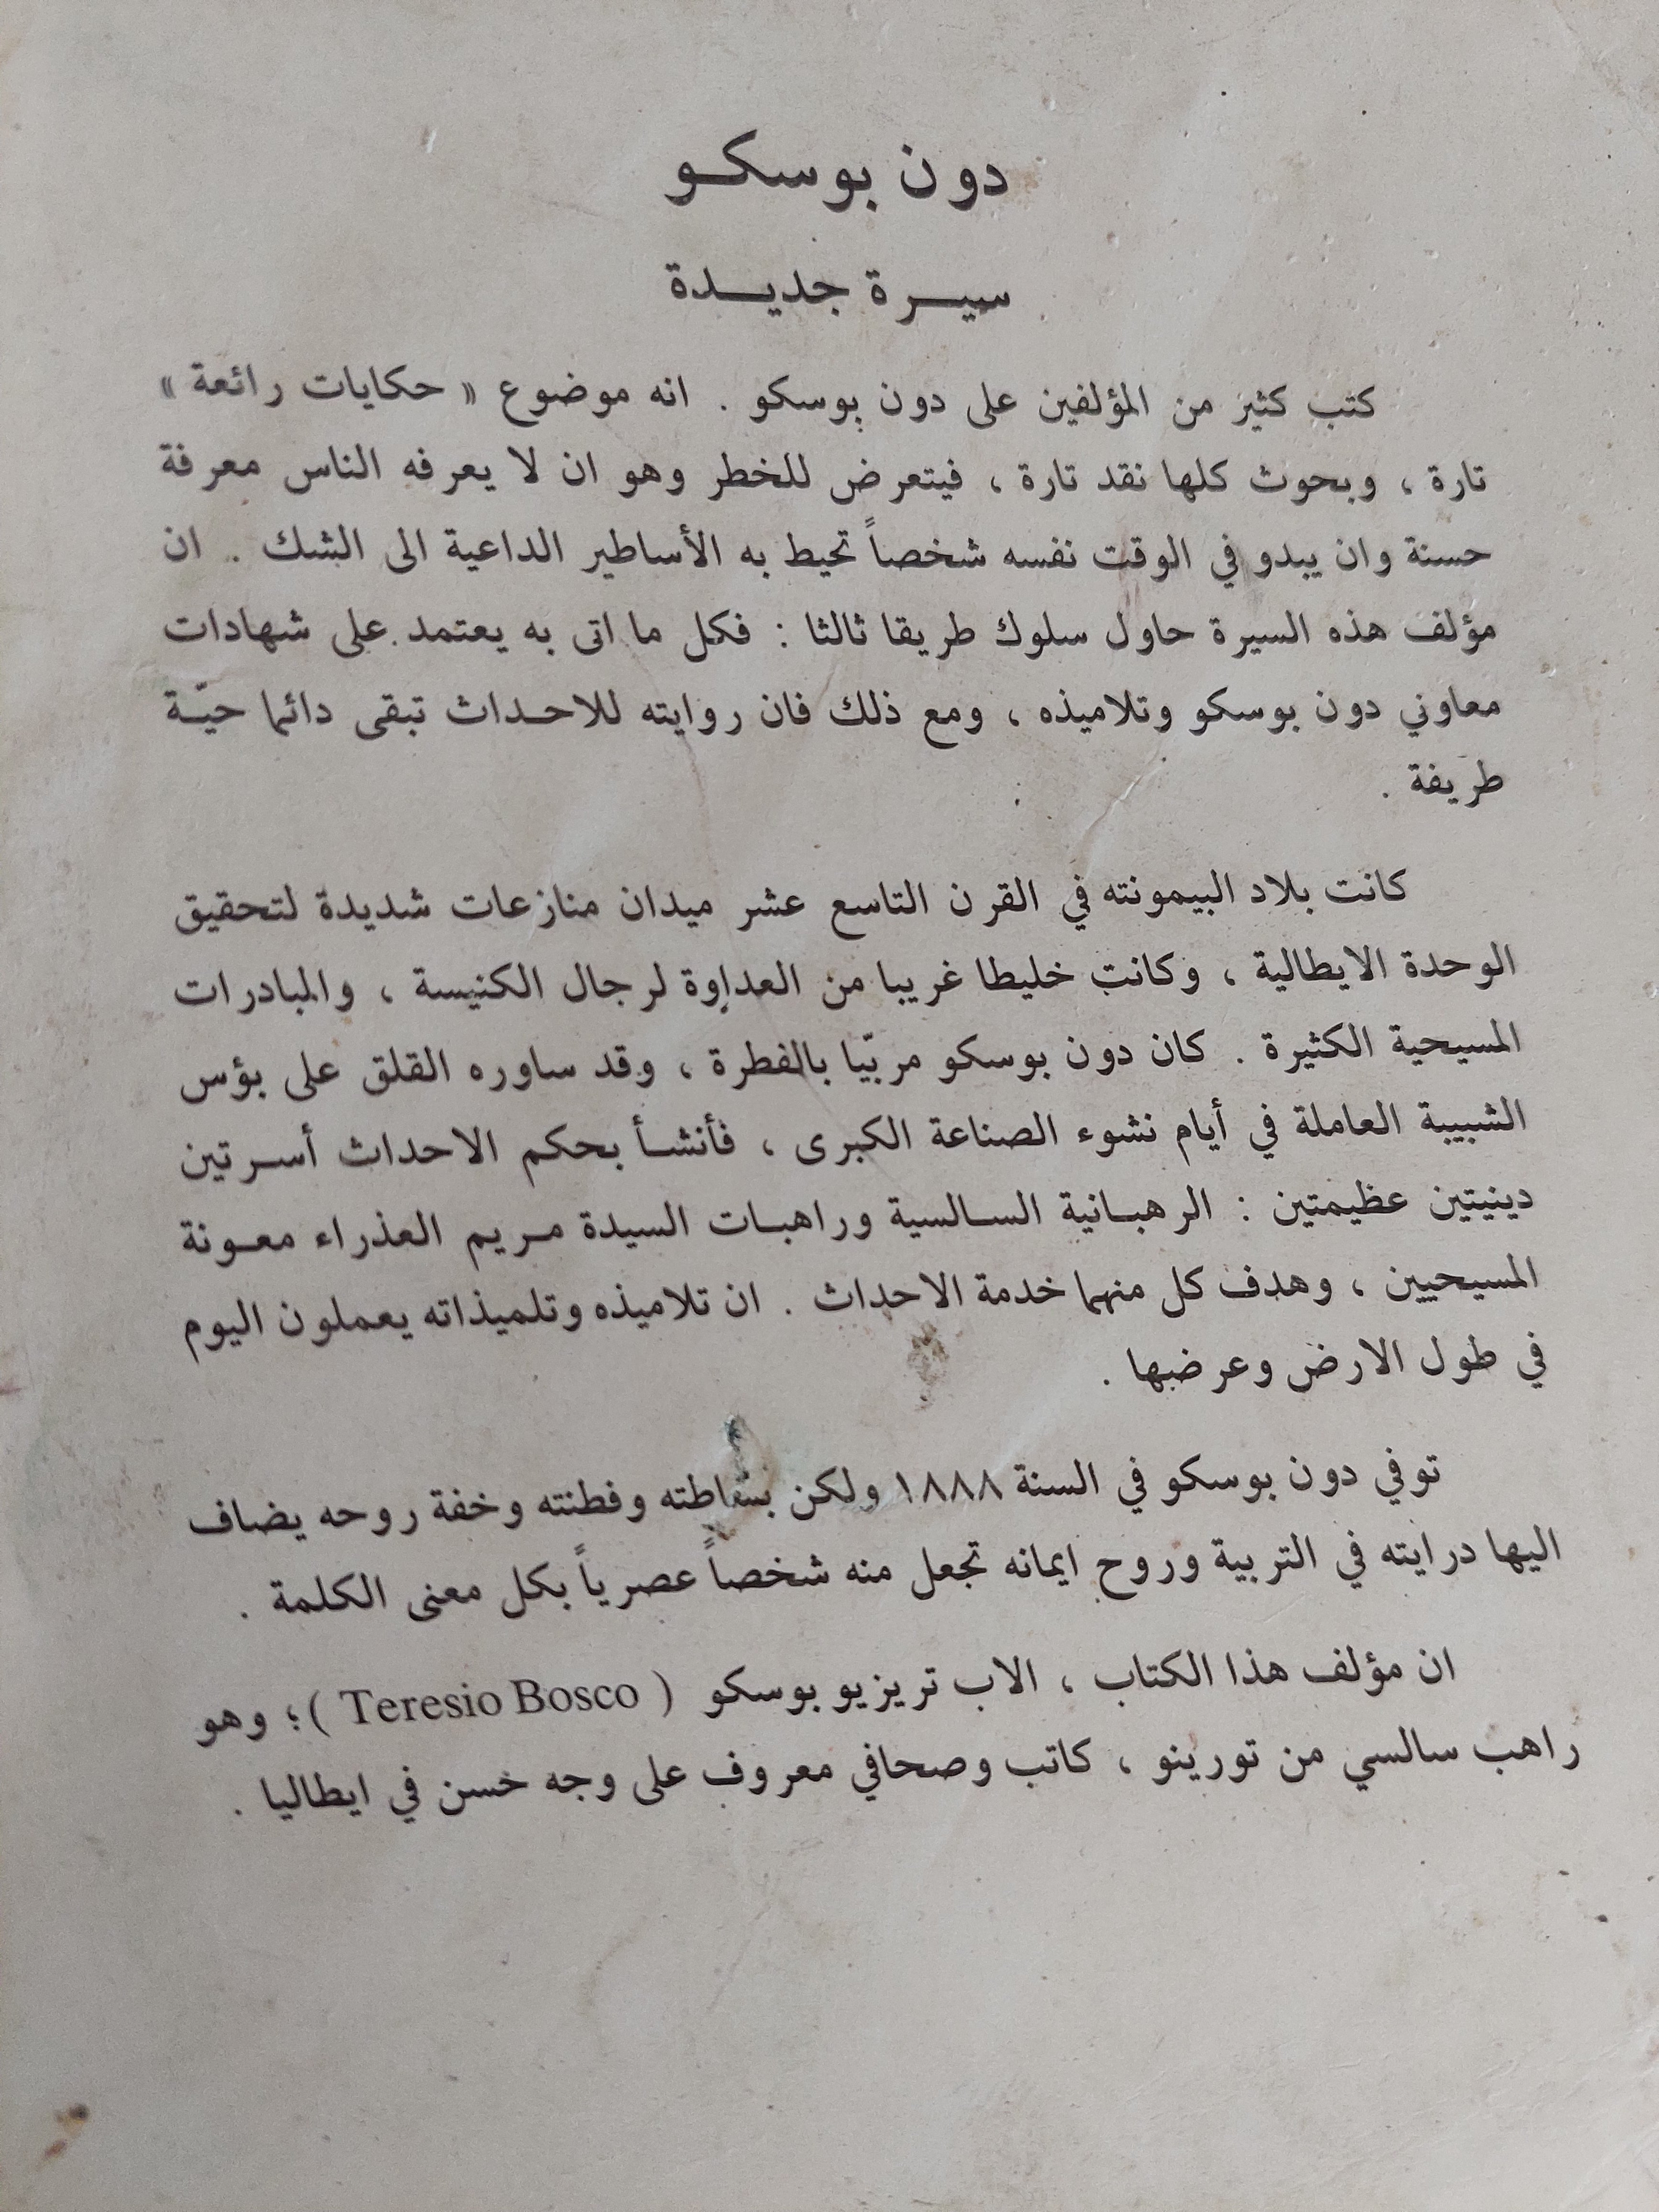 دون بوسكو
سيرة جديدة
كتب كثير من المؤلفين على دون بوسكو . انه موضوع « حكايات رائعة »
تارة ، وبحوث كلها نقد تارة ، فيتعرض للخطر وهو ان لا يعرفه الناس معرفة
حسنة وان يبدو في الوقت نفسه شخصاً تحيط به الأساطير الداعية الى الشك . ان
مؤلف هذه السيرة حاول سلوك طريقا ثالثا : فكل ما اتى به يعتمد على شهادات
معاوني دون بوسكو وتلاميذه ، ومع ذلك فان روايته للاحداث تبقى دائما حيّة
طريفة .
كانت بلاد البيمونته في القرن التاسع عشر ميدان منازعات شديدة لتحقيق
الوحدة الايطالية ، وكانت خليطا غريبا من العداوة لرجال الكنيسة ، والمبادرات
المسيحية الكثيرة . كان دون بوسكو مربّيا بالفطرة ، وقد ساوره القلق على بؤس
الشبيبة العاملة في أيام نشوء الصناعة الكبرى ، فأنشأ بحكم الاحداث أسرتين
دينيتين عظيمتين : الرهبانية السالسية وراهبات السيدة مريم العذراء معونة
المسيحيين ، وهدف كل منهما خدمة الاحداث . ان تلاميذه وتلميذاته يعملون اليوم
في طول الارض وعرضها .
توفي دون بوسكو في السنة ١٨٨٨ ولكن بساطته وفطنته وخفة روحه يضاف
اليها درايته في التربية وروح ايمانه تجعل منه شخصاً عصرياً بكل معنى الكلمة .
ان مؤلف هذا الكتاب ، الاب تريزيو بوسكو ( Teresio Bosco )؛ وهو
راهب سالسي من تورينو ، كاتب وصحافي معروف على وجه حسن في ايطاليا .